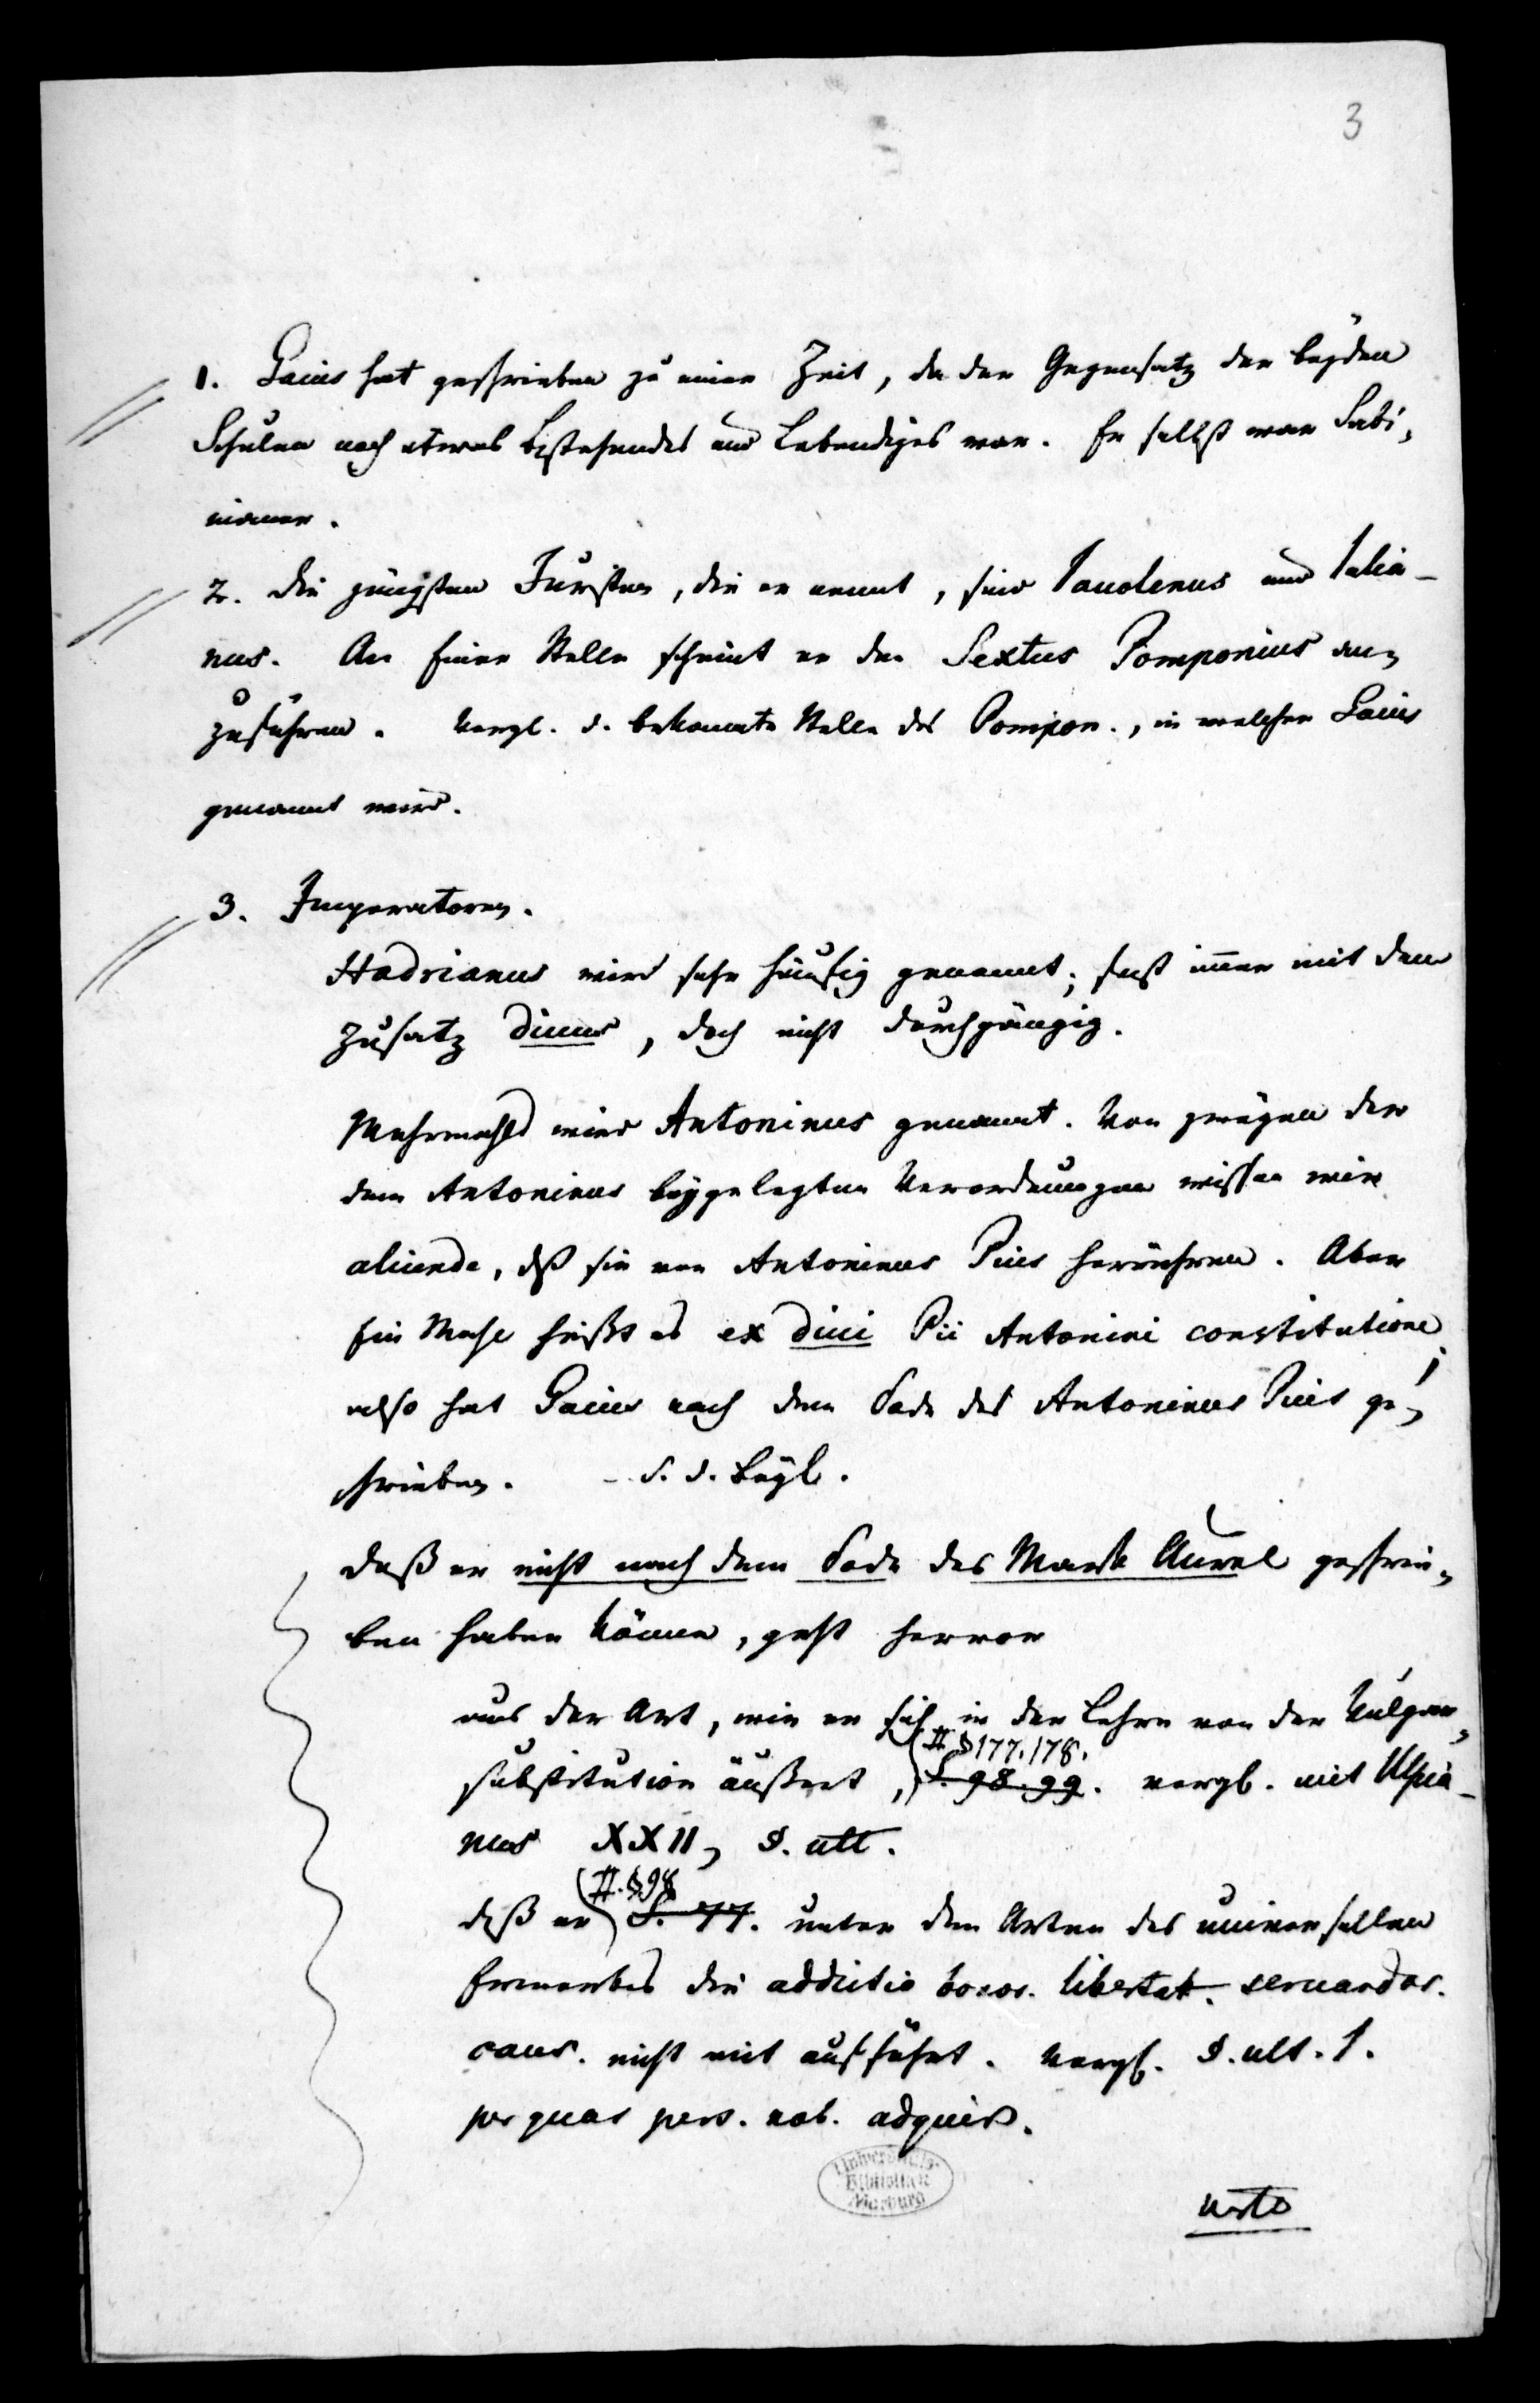 3
1. Gaius hat geschrieben zu einer Zeit, da der Gegensatz der beyden
Schulen noch etwas Bestehendes und Lebendiges war. Er selbst war Sabi-
nianer.
2. Die jüngsten Juristen, die er nennt, sind Iauolenus und Iulia-
nus. An Einer Stelle scheint er den Sextus Pomponius an-
zuführen. Vergl. d. bekannte Stelle des Pompon., in welcher Gaius
genannt wird.
3. Imperatoren.
Hadrianus wird sehr häufig genannt; fast immer mit dem
Zusatz diuus, doch nicht durchgängig.
Mehrmahls wird Antoninus genannt. Von einigen der
dem Antoninus beygelegten Verordnungen wissen wir
aliunde, daß sie von Antoninus Pius herrühren. Aber
Ein Mahl heißt es ex diui Pii Antonini constitutione;
also hat Gaius nach dem Tode des Antoninus Pius ge-
schrieben. – S. d. Beyl.
Daß er nicht nach dem Tode des Mark Aurel geschrie-
ben haben könne, geht hervor
aus der Art, wie er sich in der Lehre von der Vulgar-
(II. §177. 178.
substitution äußert, S. 98. 99. vergl. mit Ulpia-
nus XXII, §. ult.
(II. §98
daß er S. 77. unter den Arten des universellen
Erwerbes die addictio bonor. libertat. seruandar.
caus. nicht mit aufführt. Vergl. §. ult. I.
per quas pers. nob. adquir.
Universitäts-
Bibliothek
Marburg
verte